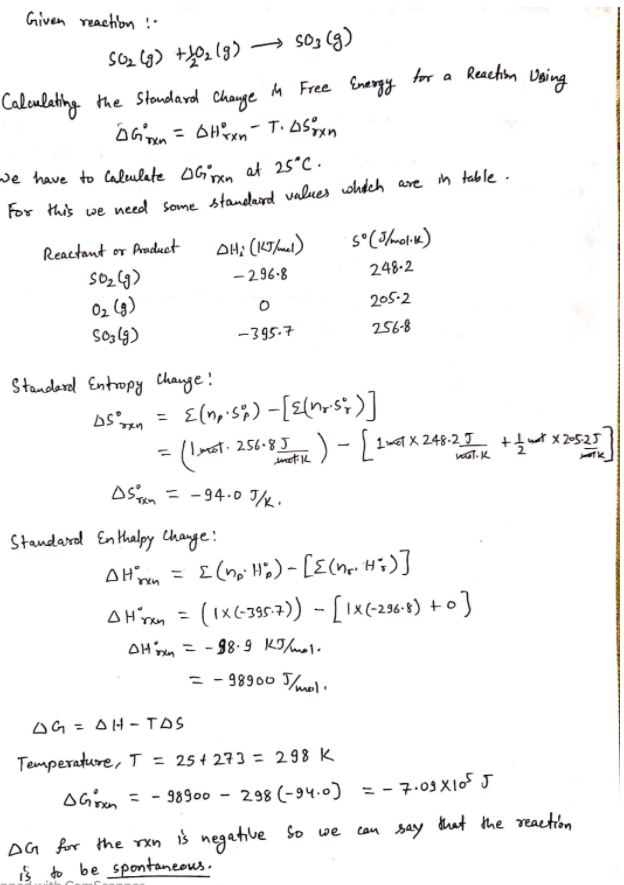 Given reaction :-
SO₂ (g) + ½O₂ (g) ⟶ SO₃ (g)
Calculating the Standard Change in Free Energy for a Reaction Using
ΔG°rxn = ΔH°rxn - T. ΔS°rxn
we have to Calculate ΔG°rxn at 25°C.
For this we need some standard values whdch are in table.
Reactant or Product ΔHᵢ (KJ/mol) S° (J/mol.K)
SO₂ (g) -296.8 248.2
O₂ (g) 0 205.2
SO₃ (g) -395.7 256.8
Standard Entropy Change:
ΔS°rxn = Σ(np.S°p) - [Σ(nr.S°r)]
= (1 mol. 256.8 J/mol.K) - [1 mol X 248.2 J/mol.K + ½ mol X 205.2 J/mol K]
ΔS°rxn = -94.0 J/K.
Standard Enthalpy Change:
ΔH°rxn = Σ(np. H°p) - [Σ(nr. H°r)]
ΔH°rxn = (1X(-395.7)) - [1X(-296.8) + 0]
ΔH°rxn = -98.9 KJ/mol.
= -98900 J/mol.
ΔG = ΔH - TΔS
Temperature, T = 25 + 273 = 298 K
ΔG°rxn = -98900 - 298 (-94.0) = -7.09 X10⁵ J
ΔG for the rxn is negative So we can say that the reaction
is to be spontaneous.